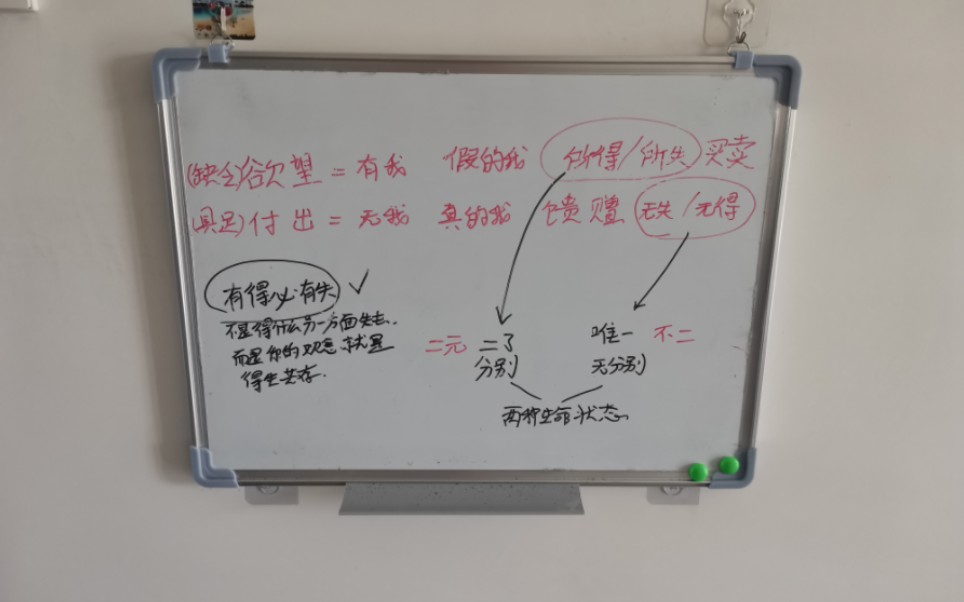 (缺乏)欲望 = 有我 假的我 所得/所失 买卖
(具足)付出 = 无我 真的我 馈赠 无失/无得
有得必有失 ✓
不是得什么另一方面失去.
而是你的观念就是
得失共存.
二元 二了 唯一 不二
分别 无分别
两种生命状态